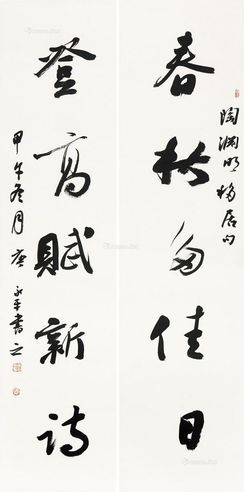 陶渊明移居句
春秋多佳日
登高赋新诗
甲午冬月唐永平书之